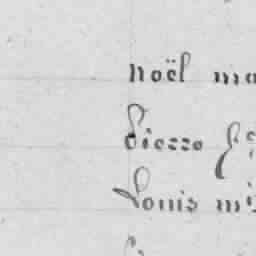 noël ma
Pierre
Louis mi